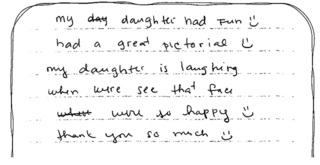 my day daughter had fun
had a great pictorial
my daughter is laughing
when were see that face
were so happy
thank you so much